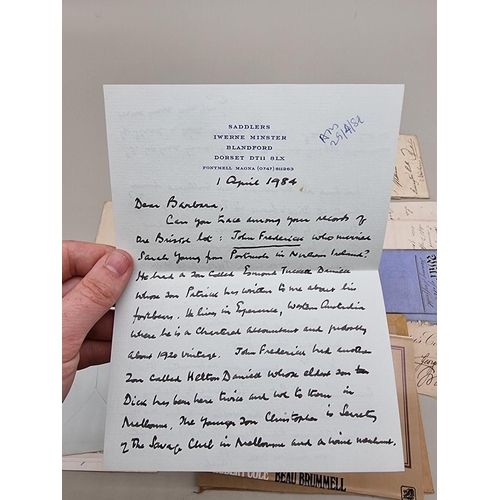 SADDLERS
IWERNE MINSTER
BLANDFORD
DORSET DT11 8LX
FONTMELL MAGNA (0747) 811263
1 April 1984
Dear Barbara,
Can you trace among your records of
the Bristol lot: John Frederick who married
Sarah Young from Portrush in Northern Ireland?
He had a son called Esmond Tuckett Daniell
whose son Patrick has written to me about his
forbears. He lives in Esperance, Western Australia
where he is a Chartered accountant and probably
about 1920 vintage. John Frederick had another
son called Helton Daniell whose eldest son
Dick has been here twice and we to them in
Melbourne. The younger son Christopher is Secretary
of the Savage Club in Melbourne and a wine merchant.
BEAU BRUMMELL